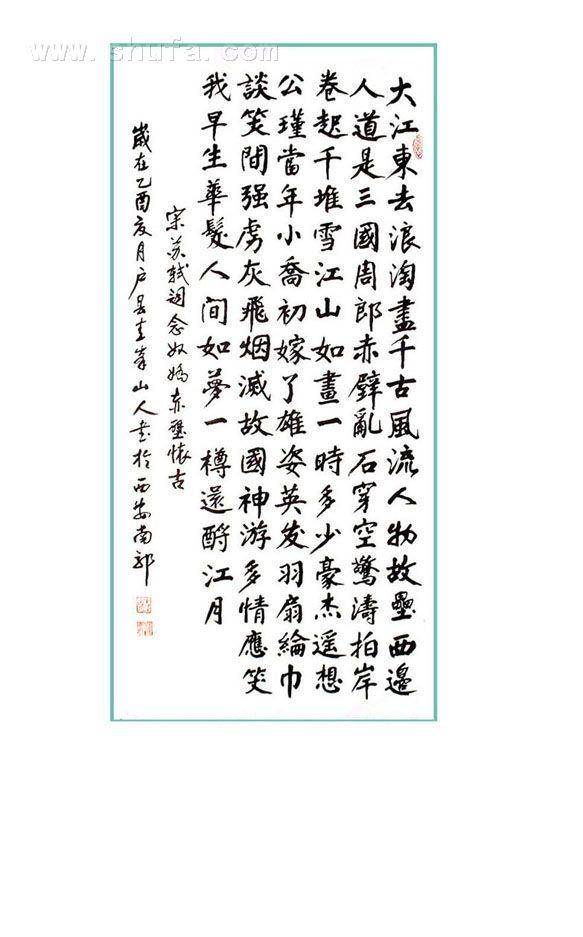 www.shufa.com
大江東去浪淘盡千古風流人物故壘西邊
人道是三國周郎赤壁亂石穿空驚濤拍岸
卷起千堆雪江山如畫一時多少豪杰遥想
公瑾當年小喬初嫁了雄姿英发羽扇綸巾
談笑間强虏灰飛烟滅故國神游多情應笑
我早生華髮人间如夢一樽還酹江月
宋苏軾詞念奴嬌赤壁懐古
歲在乙酉夏月户县圭峯山人书於西安南郊